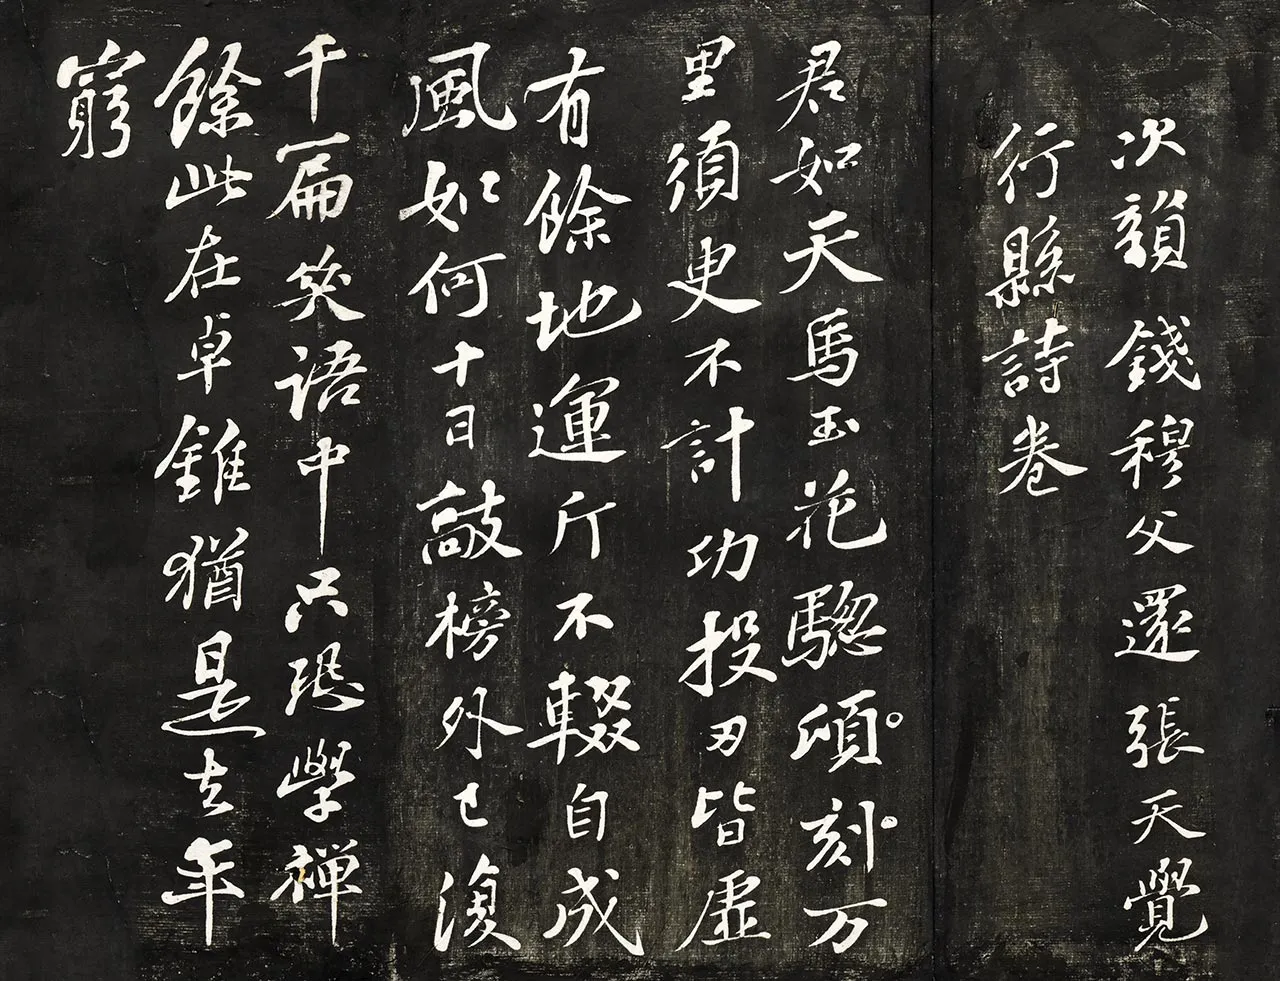 次韻錢穆父還張天覺
行縣詩卷
君如天馬玉花驄頃刻万
里須臾不計功投刃皆虛
有餘地運斤不輟自成
風如何十日敲榜外已復
千篇笑語中只恐學禪
餘此在卓錐猶是去年
窮